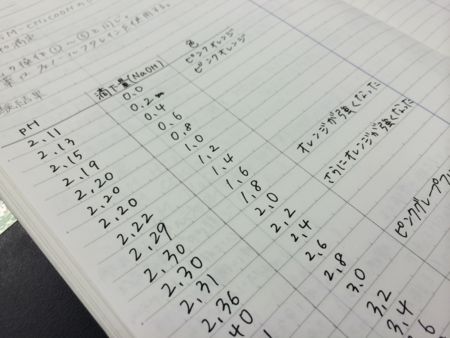 色
pH 滴下量(NaOH)
2.11 0.0 ピンクオレンジ
2.13 0.2 ピンクオレンジ
2.15 0.4
2.19 0.6
2.20 0.8
2.20 1.0
2.22 1.2
2.29 1.4
2.30 1.6
2.30 1.8 オレンジが強くなった
2.31 2.0
2.36 2.2 さらにオレンジが強くなった
40 2.4
2.6
2.8 ピンクグレープフ
3.0
3.2
3.4